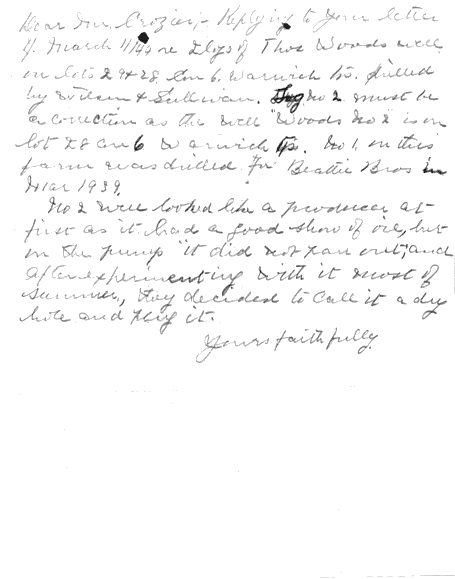 Dear Mr. Crozier;- Replying to your letter
of March 11/40 re Logs of Thos Woods well
on lots 29 & 28 Con 6. Warwick Tp. drilled
by Wilson & Sullivan. Log No 2 must be
a correction as the well "Woods No 2" is on
lot 28 Con 6 Warwick Tp. No 1. on this
farm was drilled for Beattie Bros in
Mar 1939.
No 2 well looked like a producer at
first as it had a good show of oil, but
on the pump "it did not pan out", and
after experimenting with it most of
summer, they decided to call it a dry
hole and plug it.
Yours faithfully